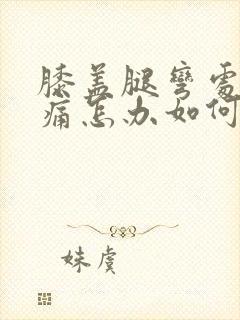 膝盖腿弯处
痛怎办如何
妹虞